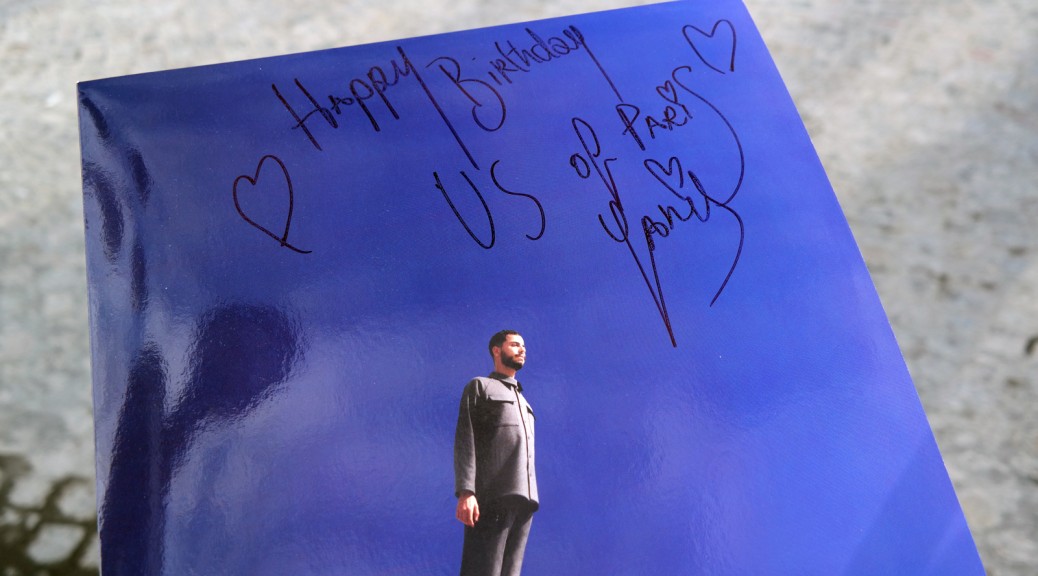 Happy Birthday
US of PARiS
YANiS